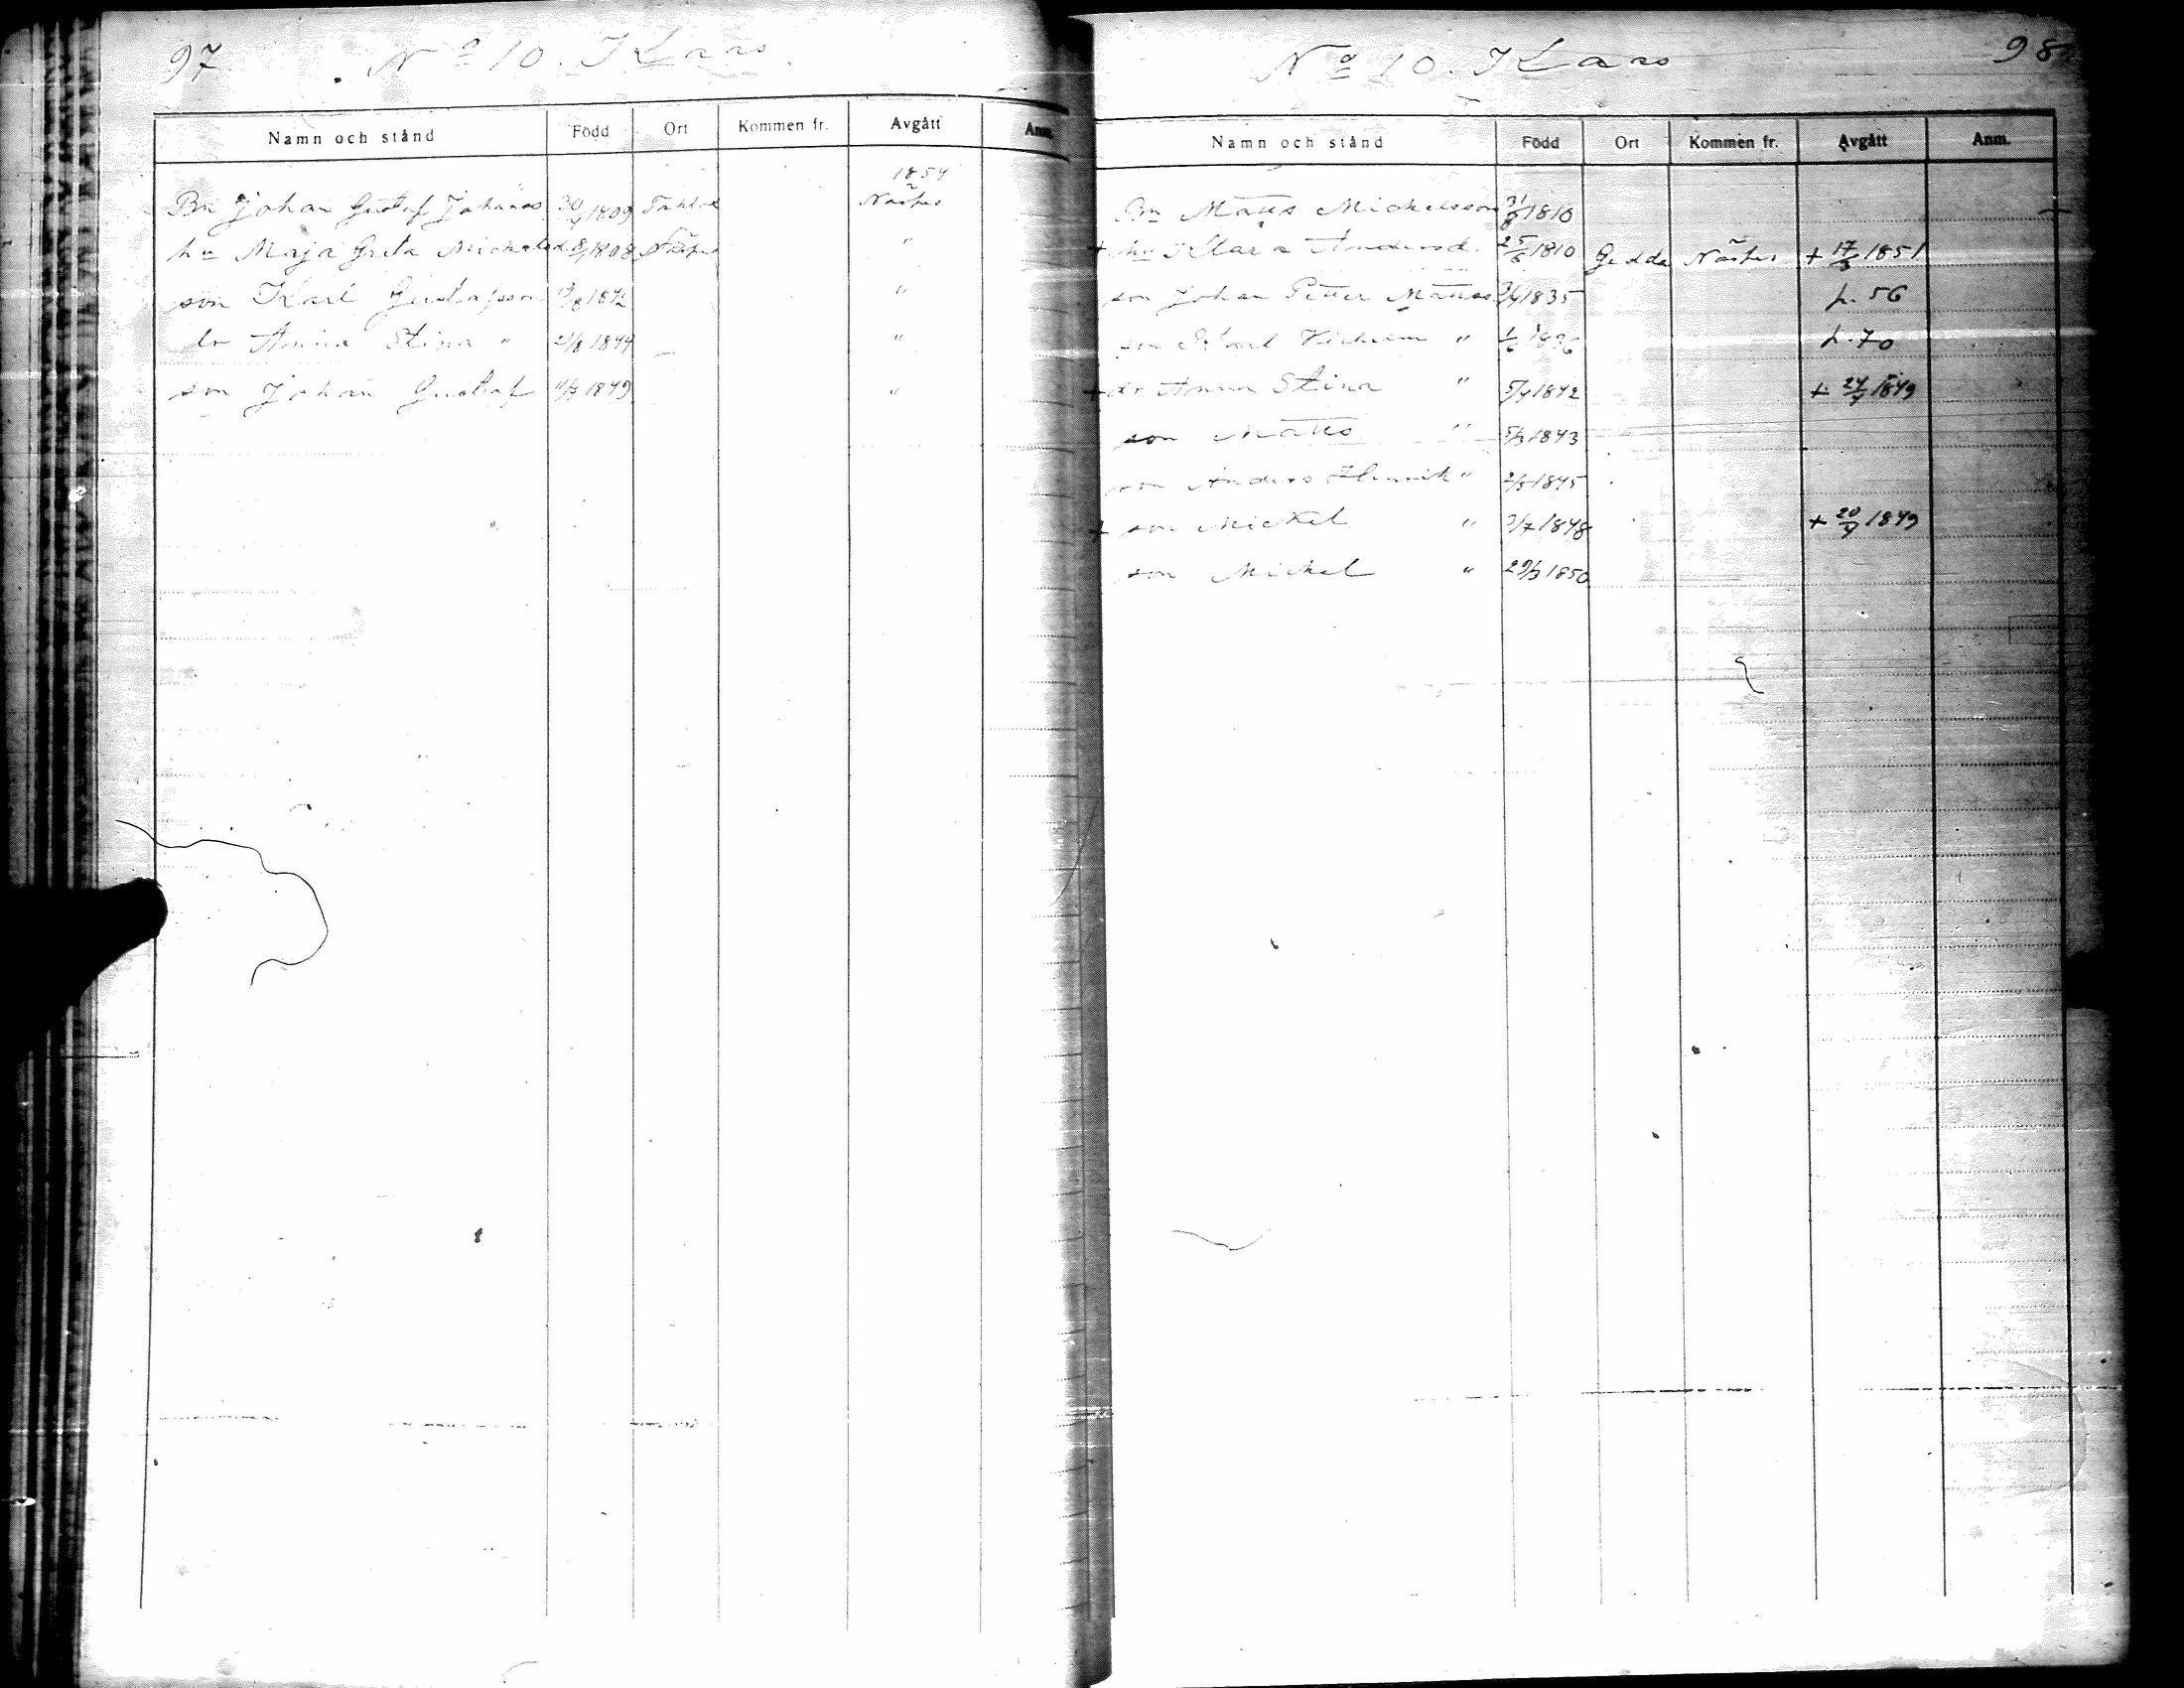 97 No 10. Klaas
Namn och stånd Född Ort Kommen fr. Avgått Anm.
1854
Bn Johan Gustaf Johanss 30/4 1809 Näshs
hu Maja Greta Mickelsd. 1808 "
son Karl Gustafsson 1842 "
dr Anna Stina " 21/8 1844 "
son Johan Gustaf 11/7 1849 "
No 10. Klaas 98
Namn och stånd Född Ort Kommen fr. Avgått Anm.
Bn Matts Mickelsson 31/8 1810
+ hu Klara Andersd. 25/6 1810 Gedda Näshs + 17/3 1851
son Johan Petter Mattss 1835 p. 56
son Karl Vilhelm " 1836 p. 70
+ dr Anna Stina " 5/4 1842 + 24/4 1849
son Matts " 5/3 1843
son Anders Henrik " 2/5 1845
+ son Mickel " 3/7 1848 + 20/4 1849
son Mickel " 29/3 1850